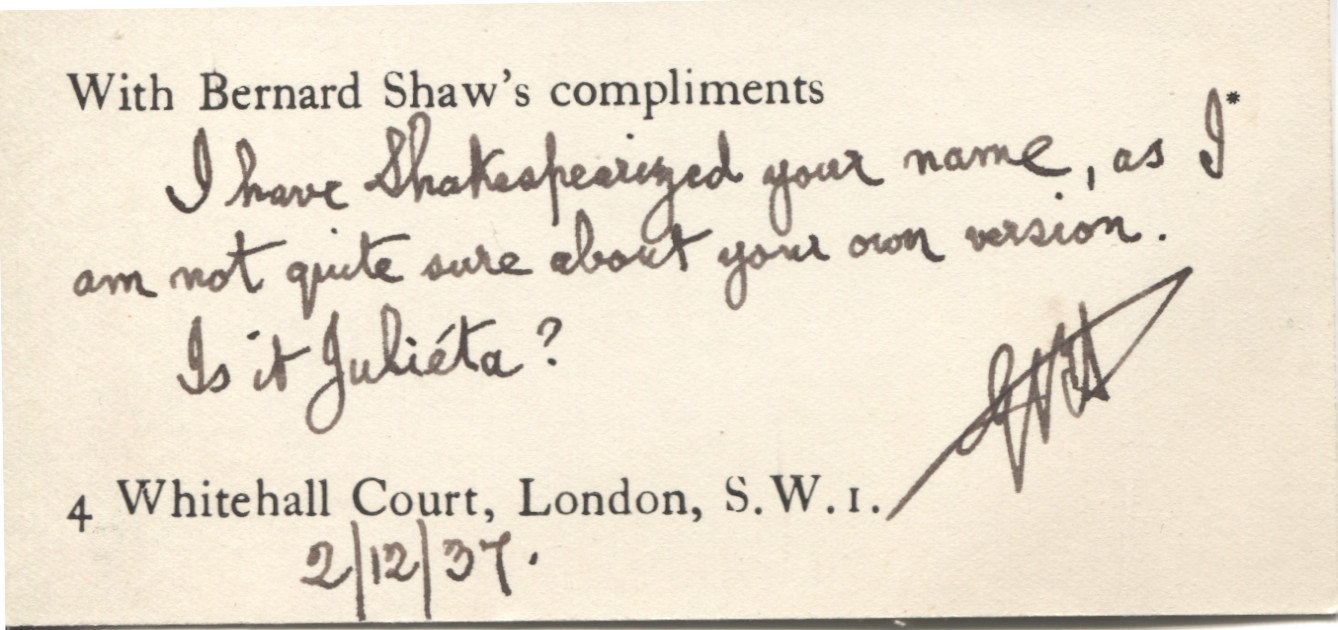 With Bernard Shaw's compliments
I have Shakespearized your name, as I*
am not quite sure about your own version.
Is it Juliéta?
GBS
4 Whitehall Court, London, S.W.1.
2/12/37.